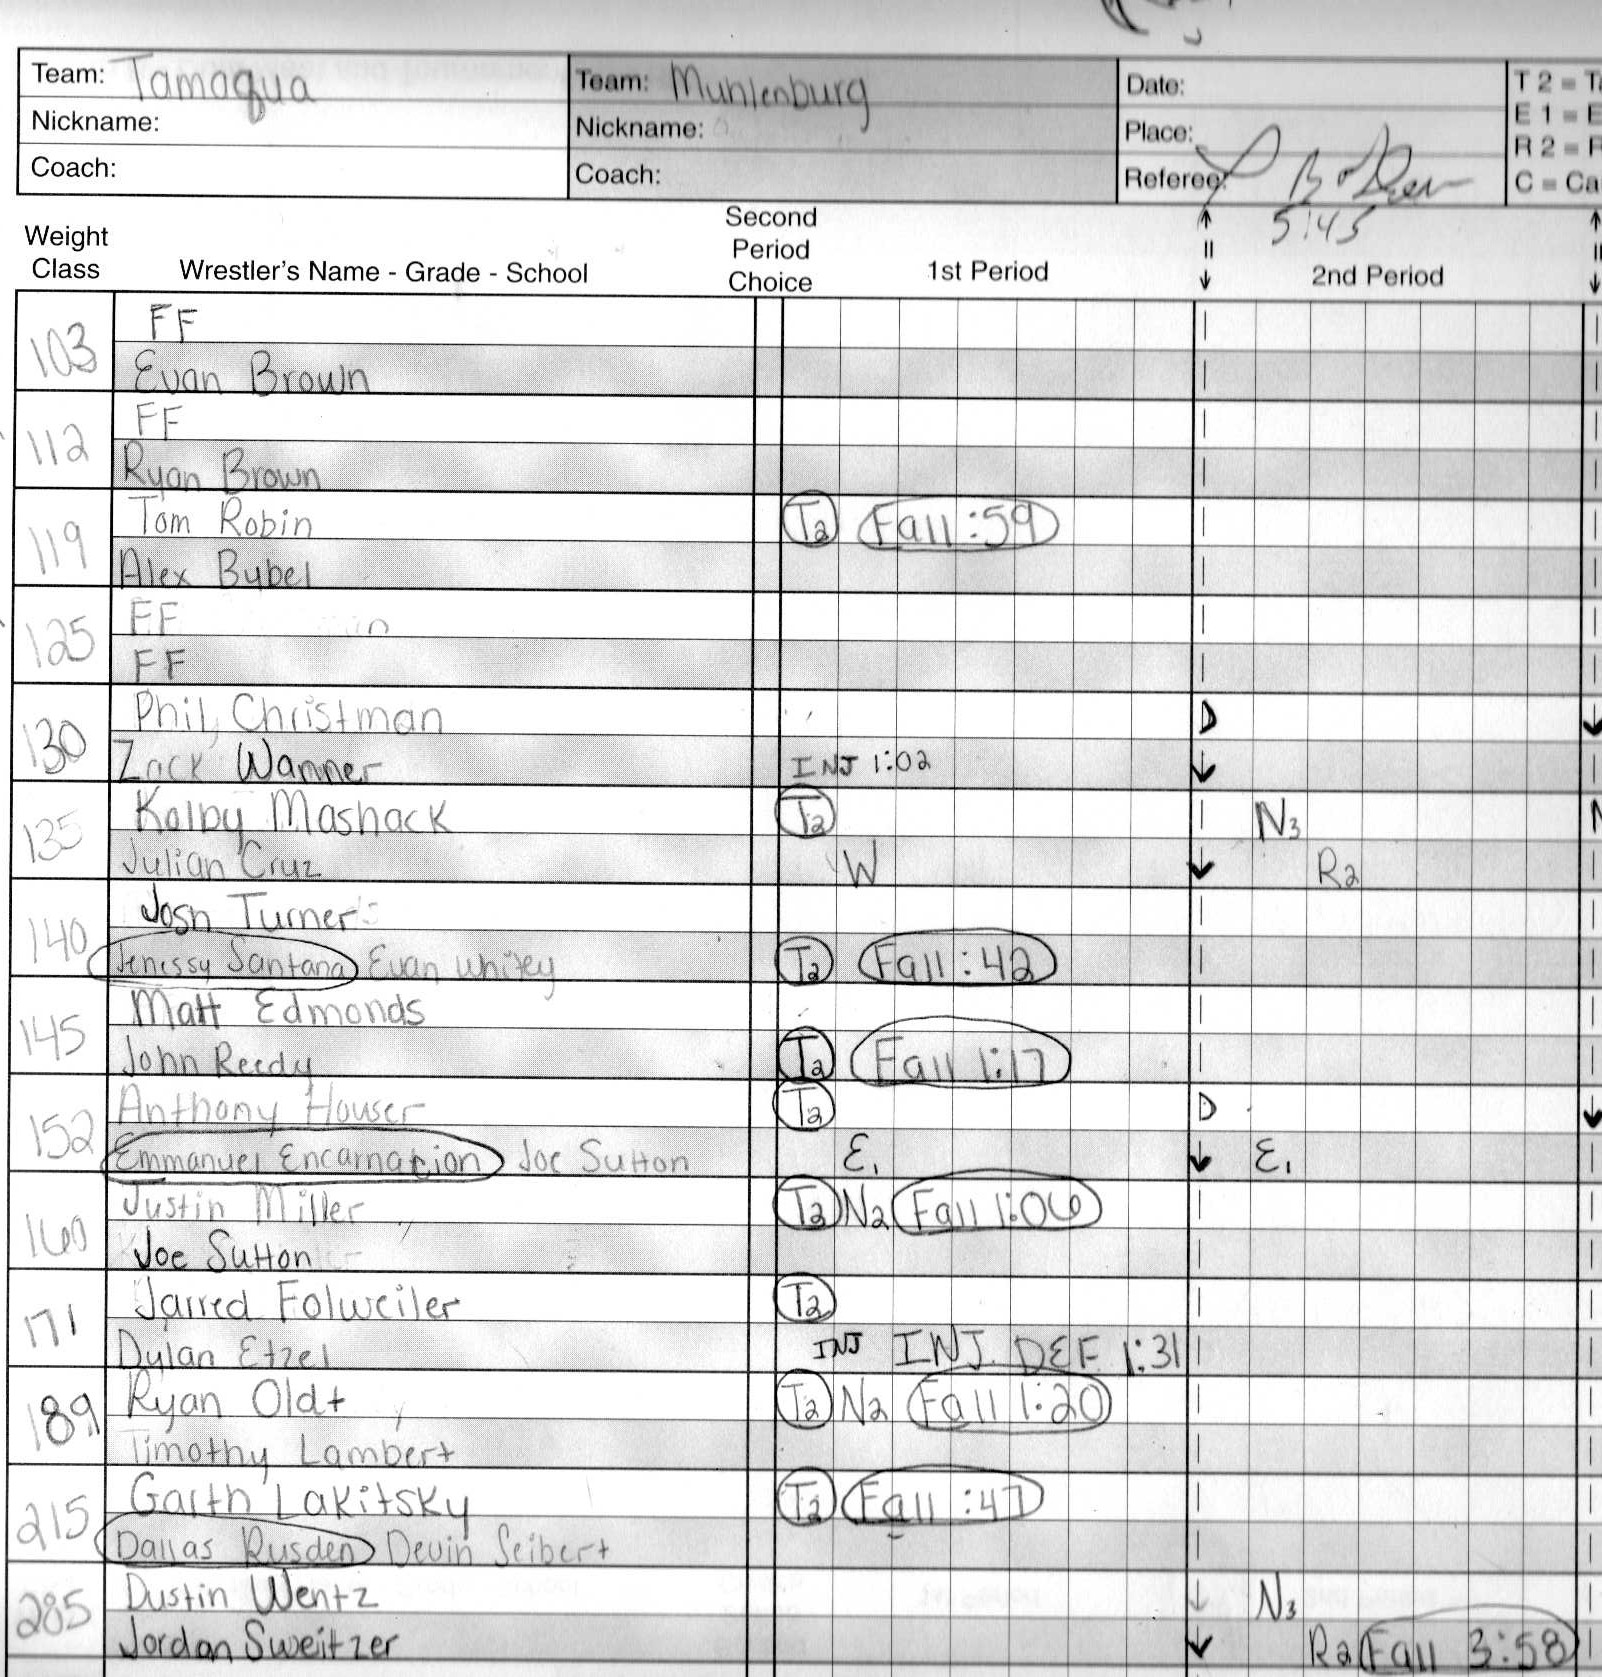 Team: Tamaqua Team: Muhlenburg Date: T 2 = T
Nickname: Nickname: Place: E 1 = E
R 2 = R
Coach: Coach: Referee: C = Ca
5:45
Weight Class Wrestler's Name - Grade - School Second Period Choice 1st Period 2nd Period
103 FF
Evan Brown
112 FF
Ryan Brown
119 Tom Robin T2 Fall :59
Alex Bybel
125 FF
FF
130 Phil Christman D
Zack Wanner INJ 1:02
135 Kolby Mashack T2 N3 N
Julian Cruz W R2
140 Josh Turner
Jenessy Santana Evan Whitey T2 Fall :42
145 Matt Edmonds
John Reedy T2 Fall 1:17
152 Anthony Houser T2 D
Emmanuel Encarnacion Joe Sutton E1 E1
160 Justin Miller T2 N2 Fall 1:06
Joe Sutton
171 Jarred Folweiler T2
Dylan Etzel INJ INJ DEF 1:31
189 Ryan Oldt T2 N2 Fall 1:20
Timothy Lambert
215 Garth Lakitsky T2 Fall :47
Dallas Rusden Devin Seibert
285 Dustin Wentz N3
Jordan Sweitzer R2 Fall 3:58